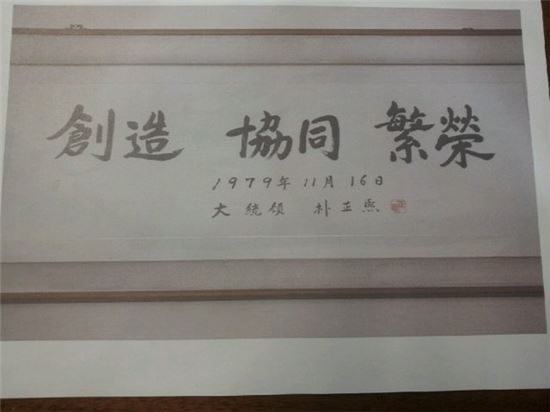 創造 協同 繁榮
1979年 11月 16日
大統領 朴正熙